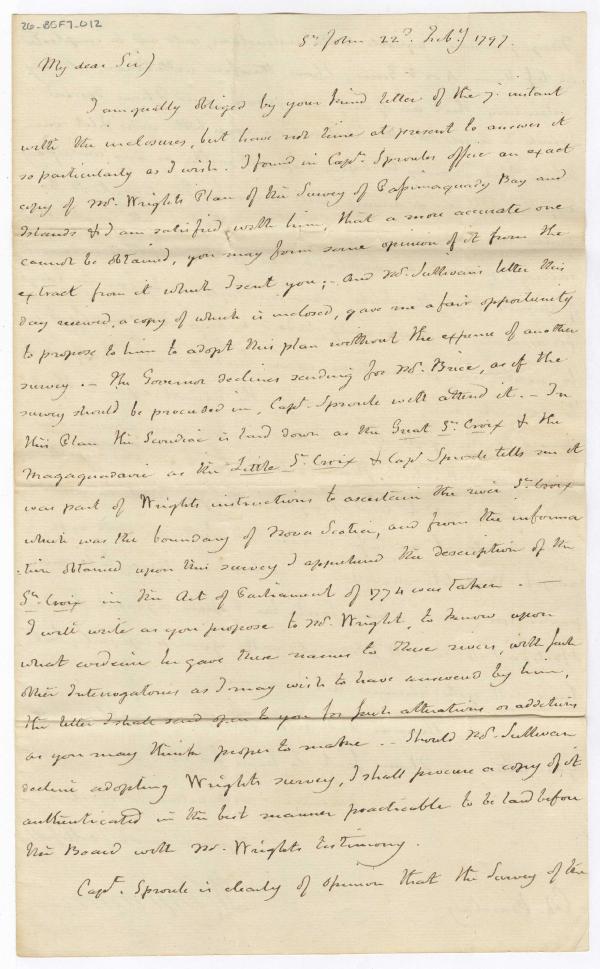 26-BCF7-012
St. John 22d. Feby. 1797.
My dear Sir)
I am really obliged by your kind letter of the 7. instant
with the inclosures, but have not time at present to answer it
so particularly as I wish. I found in Capt. Sproules office an exact
copy of Mr. Wrights Plan of the Survey of Passimaquady Bay and
Islands & I am satisfied with him, that a more accurate one
cannot be obtained, you may form some opinion of it from the
extract from it which I sent you; – And Mr. Sullivan's letter this
day received, a copy of which is inclosed, gave me a fair opportunity
to propose to him to adopt this plan without the expense of another
survey. – The Governor declines sending for Mr. Brice, as if the
survey should be proceeded in, Capt. Sproule will attend it. – In
this Plan the Scoudiac is laid down as the Great St. Croix & the
Magaguadavic as the Little St. Croix & Capt Sproule tells me it
was part of Wrights instructions to ascertain the river St. Croix
which was the boundary of Nova Scotia, and from the informa
-tion obtained upon this survey I apprehend the description of the
St. Croix in the Act of Parliament of 1774 was taken. –
I will write as you propose to Mr. Wright, to know upon
what evidence he gave these names to these rivers, with such
other Interrogatories as I may wish to have answered by him,
the letter I shall send open to you for such alterations or additions
as you may think proper to make. – Should Mr. Sullivan
decline adopting Wrights survey, I shall procure a copy of it
authenticated in the best manner practicable to be laid before
the Board with Mr. Wrights testimony.
Capt. Sproule is clearly of opinion that the Survey of the